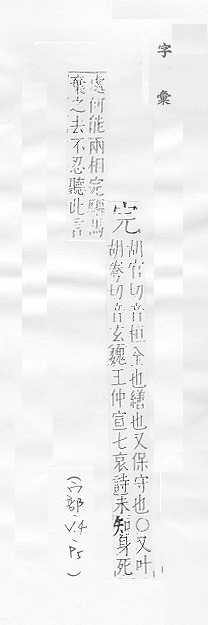 字彙
完
胡官切音桓全也繕也又保守也○又叶
胡切音玄魏王仲宣七哀詩未知身死
處何能兩相完驅馬
棄之去不忍聽此言
(宀部、V.4、P5)